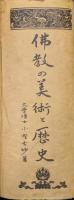 佛教の美術と歴史
文學博士 小野玄妙著